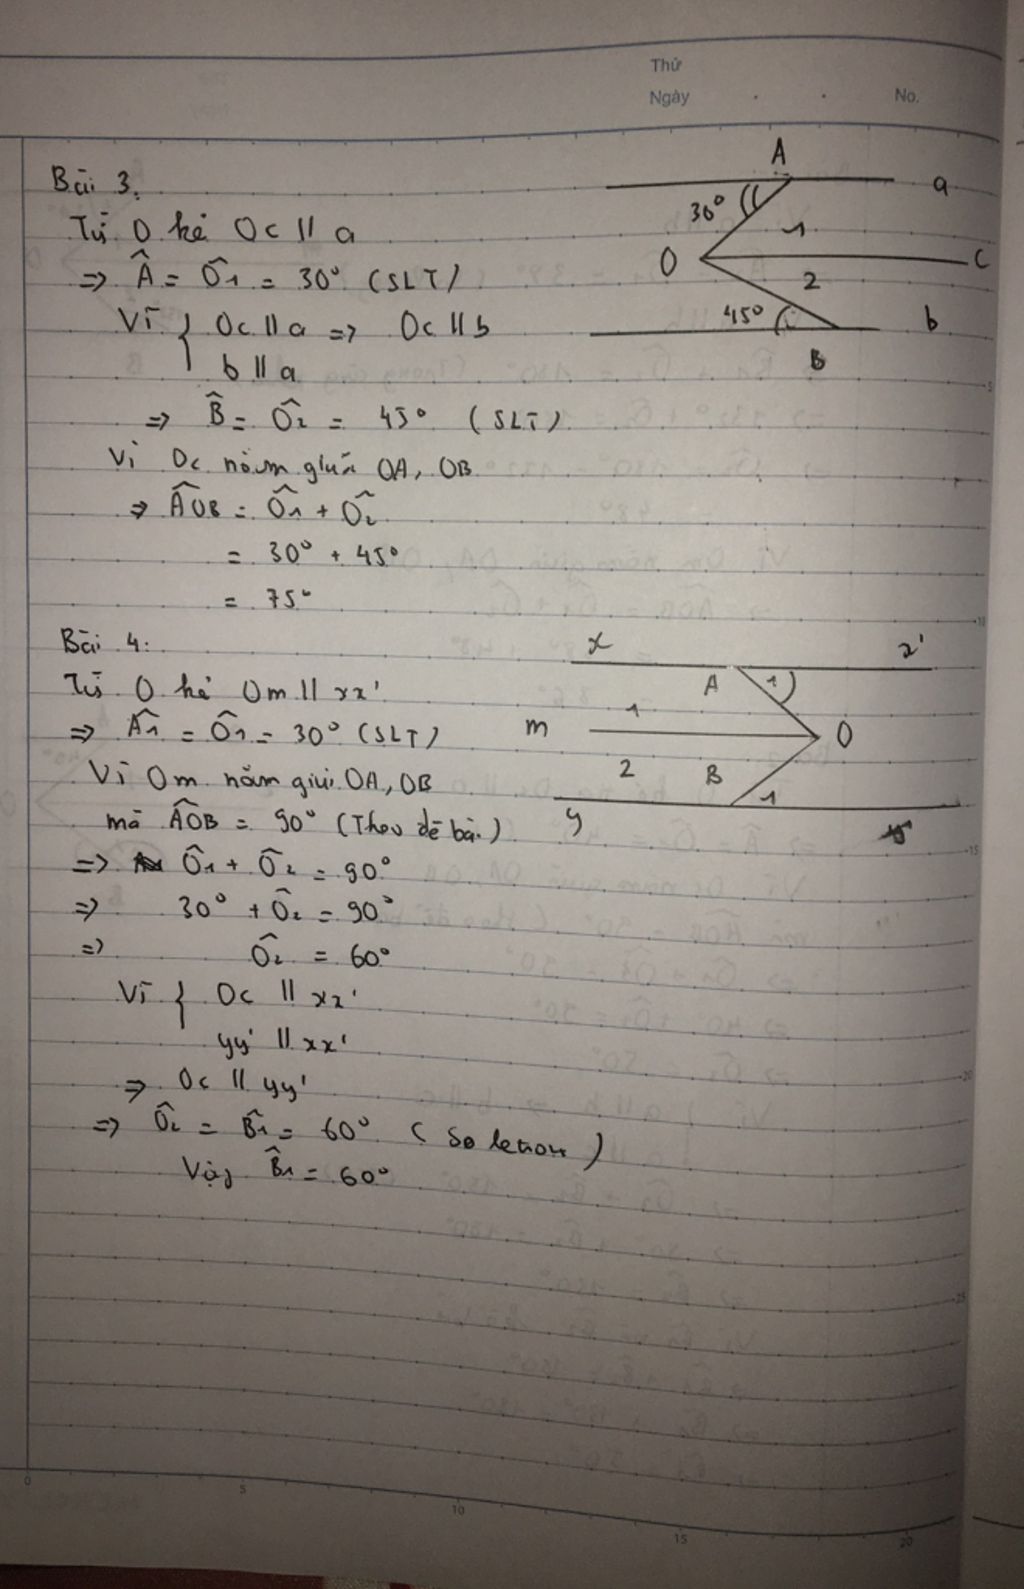 Thứ
Ngày . . No.
Bài 3.
Từ O kẻ Oc // a
=> Â = Ô1 = 30° (SLT)
Vì { Oc // a => Oc // b
b // a
=> B̂ = Ô2 = 45° (SLT)
Vì Oc nằm giữa OA, OB
=> AÔB = Ô1 + Ô2
= 30° + 45°
= 75°
A
a
30°
1
O
c
2
45°
b
B
Bài 4:
Từ O kẻ Om // xx'
=> Â1 = Ô1 = 30° (SLT)
Vì Om nằm giữ OA, OB
mà AÔB = 90° (Theo đề bài)
=> Ô1 + Ô2 = 90°
=> 30° + Ô2 = 90°
=> Ô2 = 60°
Vì { Oc // xx'
yy' // xx'
=> Oc // yy'
=> Ô2 = B̂1 = 60° ( So le trong )
Vậy B̂1 = 60°
x
x'
A
1
1
m
O
2
B
1
y
5
10
15
20
25
0
5
10
15
20